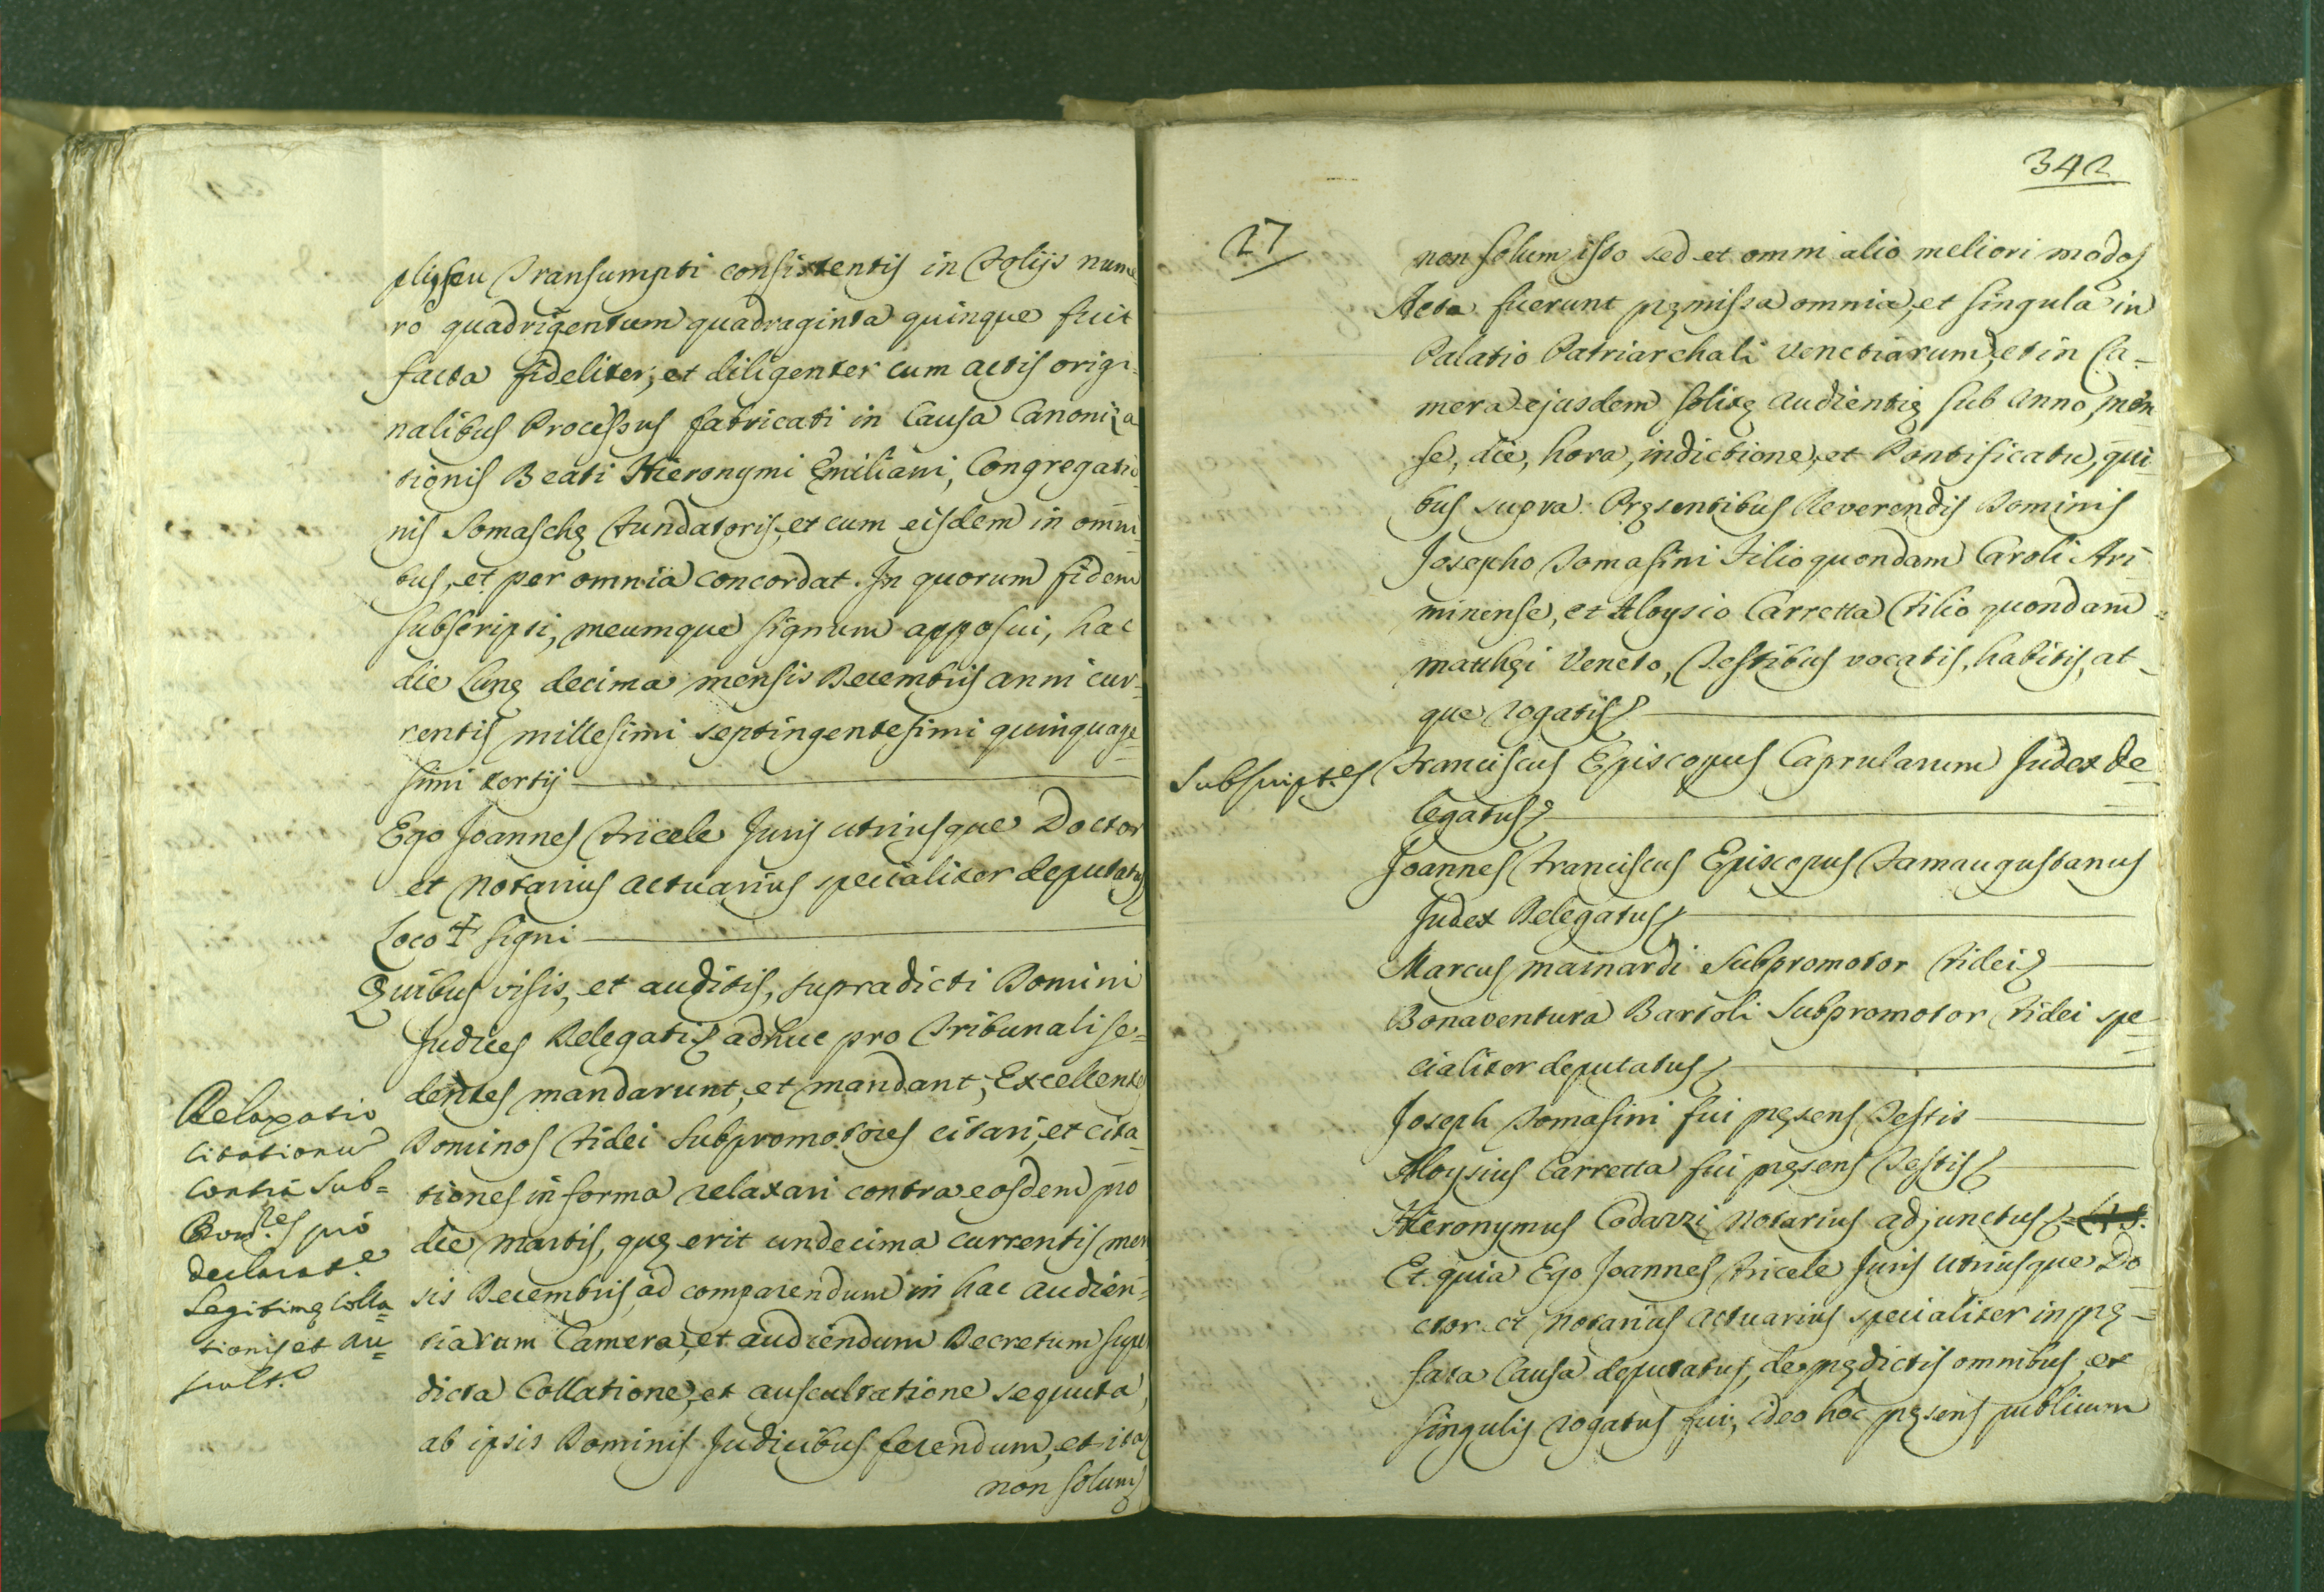 plis, seu Transumpti consistentis in Folijs nume-
ro quadrigentum quadraginta quinque fuit
facta fideliter, et diligenter cum actis origi-
nalibus Processus fabricati in Causa Canoniza
tionis Beati Hieronymi Emiliani, Congregatio-
nis Somaschę Fundatoris, et cum eisdem in omni-
bus, et per omnia concordat. In quorum fidem
subscripsi, meumque signum apposui, hac
die Lunę decima mensis Decembris anni cur-
rentis millesimi septingentesimi quinquage-
simi tertij
Ego Joannes Fricele Juris utriusque Doctor
et Notarius Actuarius specialiter deputatus
Loco + signi
Quibus visis, et auditis, supradicti Domini
Judices Delegati adhuc pro Tribunali se=
dentes mandarunt, et mandant, Excellentes
Dominos Fidei Subpromotores citari, et cita-
tiones in forma relaxari contra eosdem pro
die Martis, quę erit undecima currentis men
sis Decembris ad comparendum in hac Audien=
tiarum Camera, et audiendum Decretum super
dicta Collatione, et auscultatione sequuta,
ab ipsis Dominis Judicibus ferendum, et ita
non solum
Relaxatio
Citationum
contra Sub=
Promres pro
declarate
Legitimę Colla=
tionis et Au=
scult.e
342
27
non solum isto sed et omni alio meliori modo
Acta fuerunt pręmissa omnia, et singula in
Palatio Patriarchali Venetiarum, et in Ca-
mera ejusdem solitę Audientię sub Anno, men
se, die, hora, indictione, et Pontificatu, qui-
bus supra. Pręsentibus Reverendis Dominis
Josepho Tomasini Filio quondam Caroli Ari-
minense, et Aloysio Carretta Filio quondam =
Matthęi Veneto, Testibus vocatis, habitis, at-
que rogatis
Subscript.es Franciscus Episcopus Caprularum Judex De-
legatus
Joannes Franciscus Episcopus Famaugustanus
Judex Delegatus
Marcus Mainardi Subpromotor Fidei
Bonaventura Bartoli Subpromotor Fidei spe-
cialiter deputatus
Joseph Tomasini fui pręsens Testis
Aloysius Carretta fui pręsens Testis
Hieronymus Codazzi Notarius adjunctus
Et quia Ego Joannes Fricele Juris Utriusque Do-
ctor et Notarius Actuarius specialiter in prę=
fata Causa deputatus, de prędictis omnibus, et
singulis rogatus fui, ideo hoc pręsens publicum